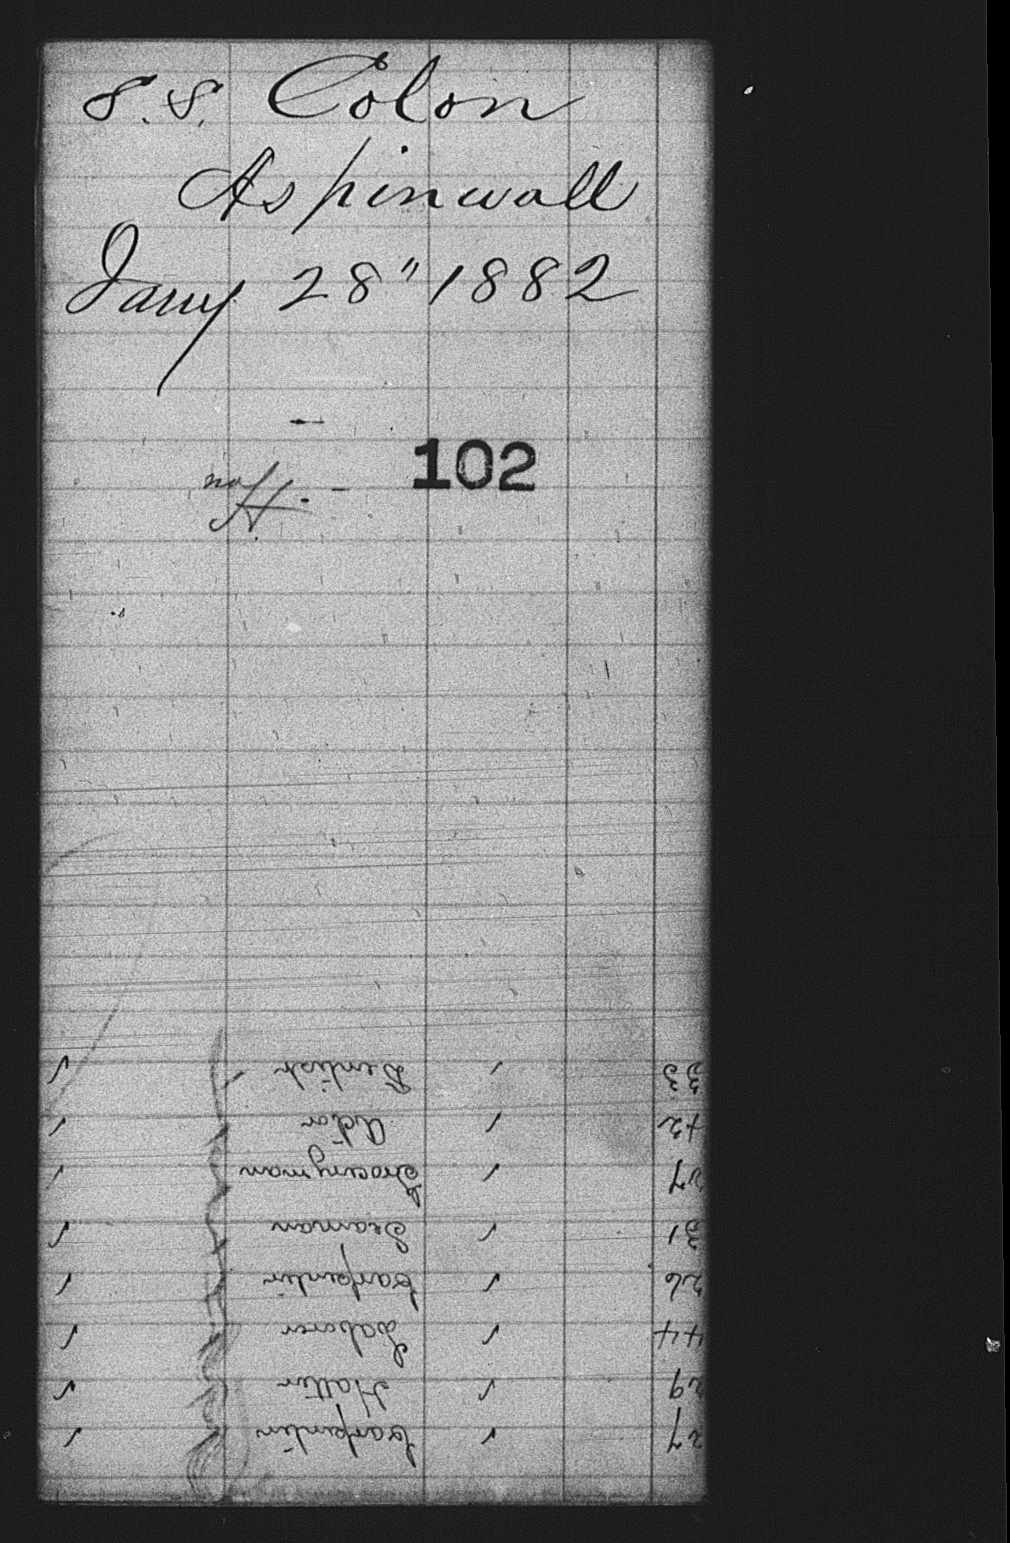 S.S. Colon
Aspinwall
Jany 28" 1882
102
no H.
27 Carpenter
29 Hatter
44 Laborer
26 Carpenter
31 Seaman
27 Groceryman
42 Actor
33 Dentist